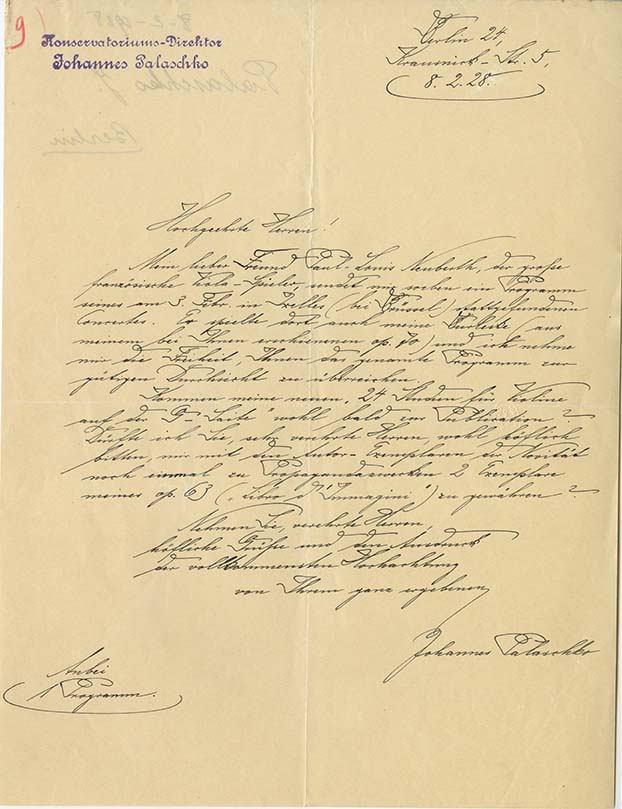 9)
Konservatoriums-Direktor
Johannes Palaschko
Berlin 24,
Krausnick-Str. 5,
8. 2. 28.
Hochgeehrte Herren!
Mein lieber Freund Paul-Louis Neuberth, der große
französische Viola-Spieler, sendet mir soeben ein Programm
seines am 3. Febr. in Ixelles (bei Brüssel) stattgefundenen
Concertes. Er spielte dort auch meine (aus
meinem bei Ihnen erschienenen op. 70) und ich nehme
mir die Freiheit, Ihnen das genannte Programm zur
gütigen Durchsicht zu überreichen.
Kommen meine neuen „24 Etuden für Violine
auf der G-Saite" wohl bald zur Publication?
Dürfte ich Sie, sehr verehrte Herren, wohl höflich
bitten, mir mit den Autor-Exemplaren der Novität
noch einmal zu Propagandazwecken 2 Exemplare
meines op. 63 („Libro d'Immagini") zu gewähren?
Nehmen Sie, verehrte Herren,
höfliche Grüße und den Ausdruck
der vollkommensten Hochachtung
von Ihrem ganz ergebenen
Johannes Palaschko
Anbei
1 Programm.